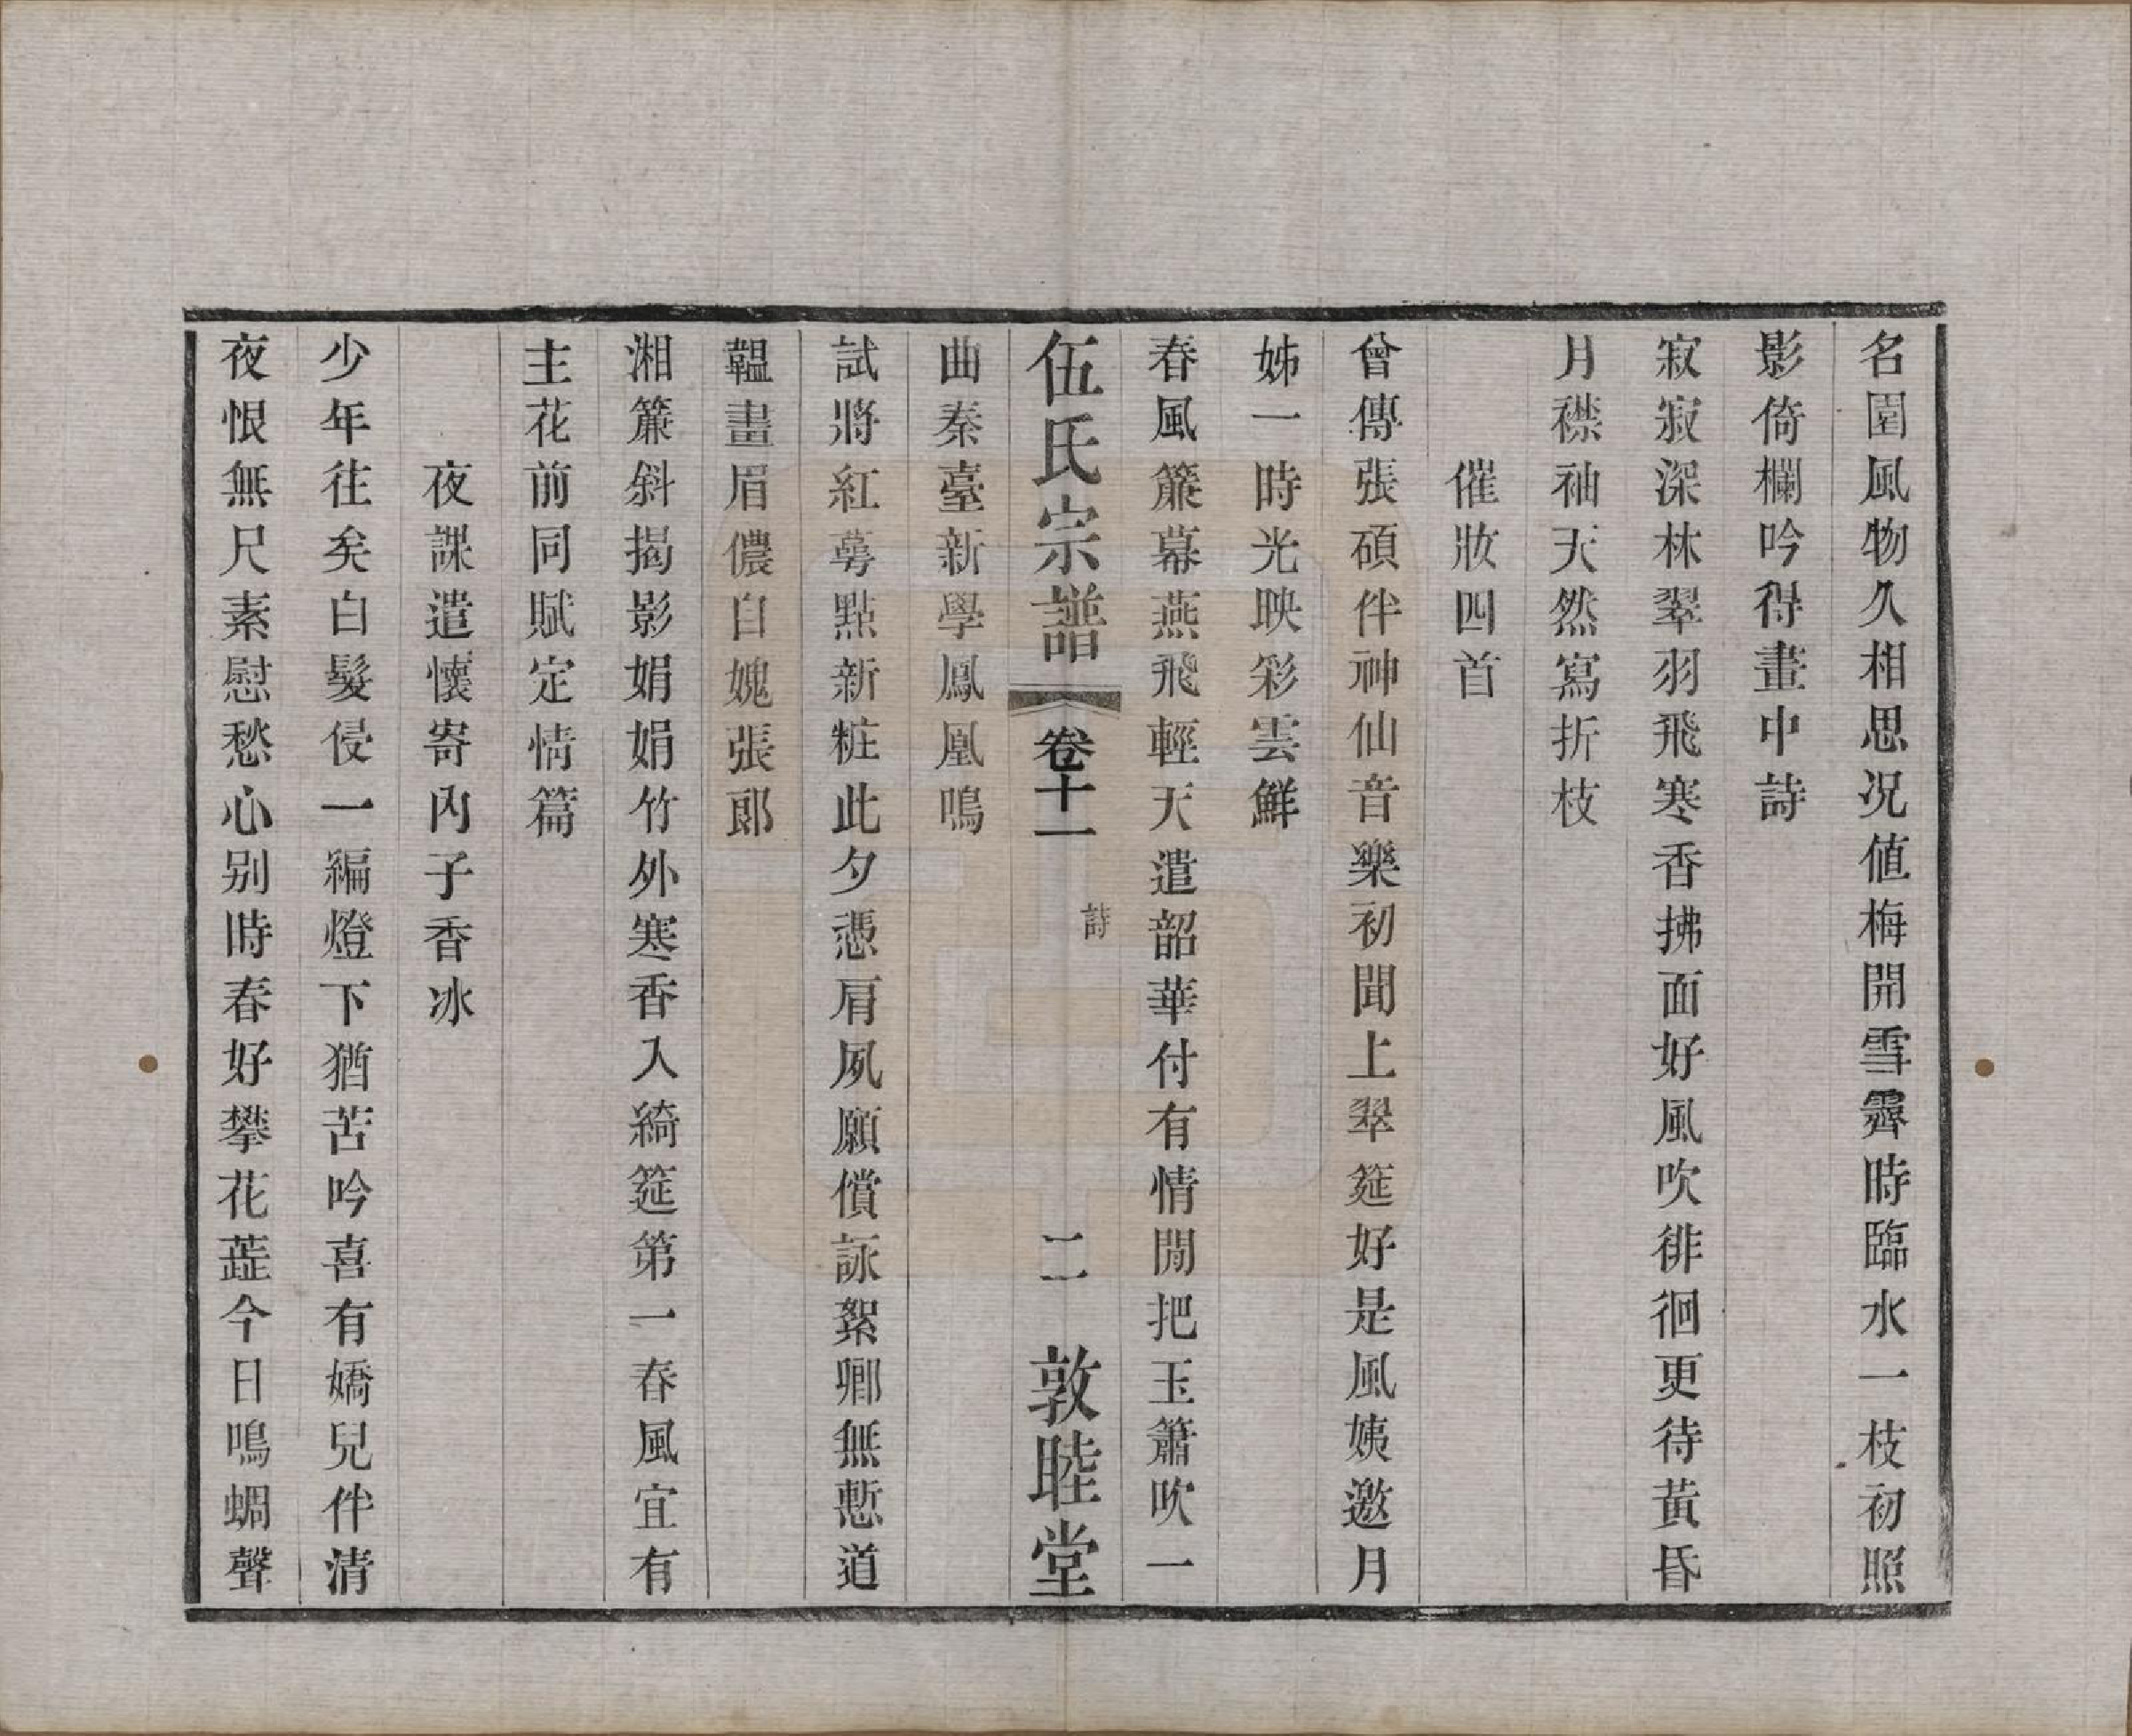 名園風物久相思况值梅開雪霽時臨水一枝初照
影倚欄吟得畫中詩
寂寂深林翠羽飛寒香拂面好風吹徘徊更待黃昏
月襟袖天然寫折枝
催妝四首
曾傳張碩伴神仙音樂初聞上翠筵好是風姨邀月
姊一時光映彩雲鮮
春風簾幕燕飛輕天遣韶華付有情閒把玉簫吹一
伍氏宗譜
卷十一
詩
二
敦睦堂
曲秦臺新學鳳凰鳴
試將紅萼點新粧此夕憑肩夙願償詠絮卿無慙道
韞畫眉儂自媿張郎
湘簾斜揭影娟娟竹外寒香入綺筵第一春風宜有
主花前同賦定情篇
夜課遣懷寄內子香冰
少年往矣白髮侵一編燈下猶苦吟喜有嬌兒伴清
夜恨無尺素慰愁心别時春好攀花蕋今日鳴蜩聲